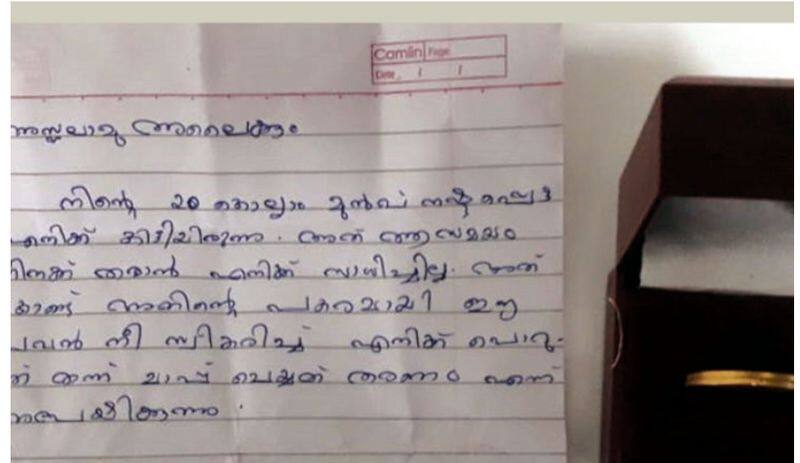 Camlin Page
Date / /
അസ്സലാമു അലൈക്കും
നിന്റെ 20 കൊല്ലം മുൻപ് നഷ്ടപ്പെട്ട
എനിക്ക് കിട്ടിയിരുന്നു. അത് ആ സമയം
നിനക്ക് തരാൻ എനിക്ക് സാധിച്ചില്ല. അത്
കൊണ്ട് അതിന്റെ പകരമായി ഈ
പവൻ നീ സ്വികരിച്ച് എനിക്ക് പൊരു-
ത്ത് ഇന്ന് മാപ്പ് ചെയ്ത് തരണം എന്ന്